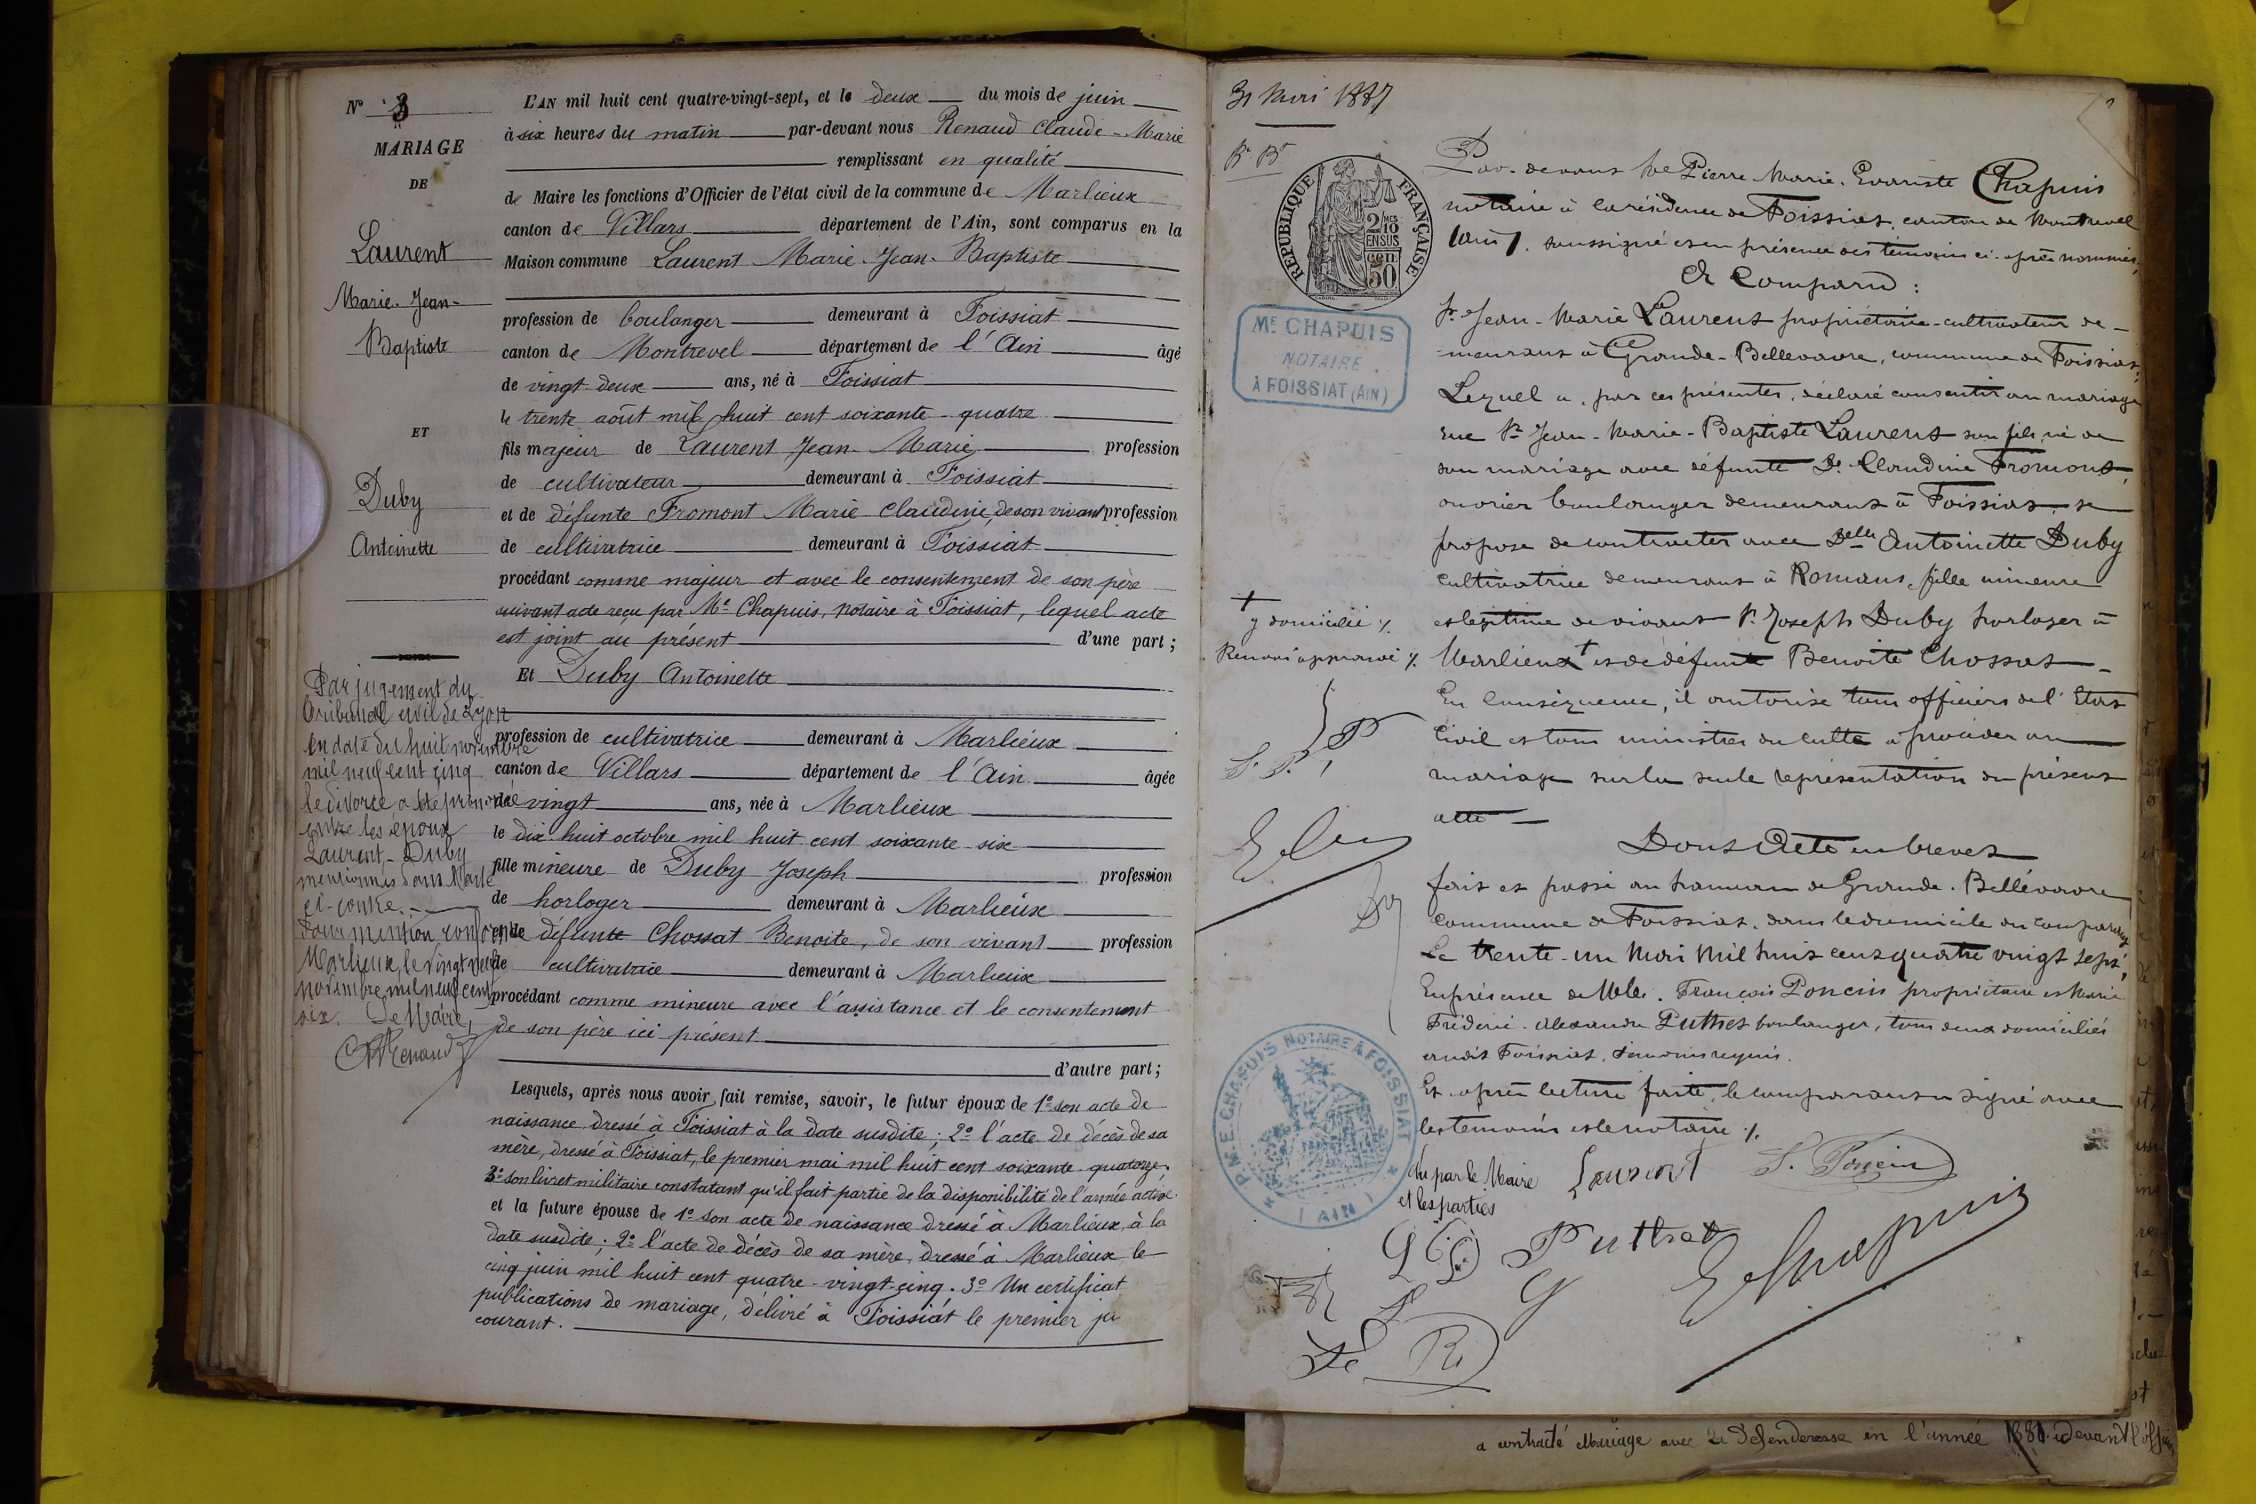 N° 3
MARIAGE
DE
Laurent
Marie-Jean-
Baptiste
ET
Duby
Antoinette
Par jugement du
tribunal civil de Lyon
en date du huit novembre
mil neuf cent cinq
le divorce a été prononcé
entre les époux
Laurent-Duby
mentionnés dans l'acte
ci-contre.
Pour mention conforme
Marlieux, le vingt neuf
novembre mil neuf cent
six. Le Maire,
Renaud
L'AN mil huit cent quatre-vingt-sept, et le deux du mois de juin
à six heures du matin par-devant nous Renaud Claude-Marie
remplissant en qualité
de Maire les fonctions d'Officier de l'état civil de la commune de Marlieux
canton de Villars département de l'Ain, sont comparus en la
Maison commune Laurent Marie-Jean-Baptiste
profession de boulanger demeurant à Foissiat
canton de Montrevel département de l'Ain âgé
de vingt-deux ans, né à Foissiat
le trente août mil huit cent soixante-quatre
fils majeur de Laurent Jean-Marie profession
de cultivateur demeurant à Foissiat
et de défunte Fromont Marie Claudine, de son vivant profession
de cultivatrice demeurant à Foissiat
procédant comme majeur et avec le consentement de son père
suivant acte reçu par Me Chapuis, notaire à Foissiat, lequel acte
est joint au présent d'une part;
Et Duby Antoinette
profession de cultivatrice demeurant à Marlieux
canton de Villars département de l'Ain âgée
de vingt ans, née à Marlieux
le dix huit octobre mil huit cent soixante-six
fille mineure de Duby Joseph profession
de horloger demeurant à Marlieux
et de défunte Chossat Benoite, de son vivant profession
de cultivatrice demeurant à Marlieux
procédant comme mineure avec l'assistance et le consentement
de son père ici présent
d'autre part;
Lesquels, après nous avoir fait remise, savoir, le futur époux de 1° son acte de
naissance dressé à Foissiat à la date susdite; 2° l'acte de décès de sa
mère, dressé à Foissiat, le premier mai mil huit cent soixante-quatorze.
3° son livret militaire constatant qu'il fait partie de la disponibilité de l'armée active.
et la future épouse de 1° son acte de naissance dressé à Marlieux, à la
date susdite; 2° l'acte de décès de sa mère, dressé à Marlieux le
cinq juin mil huit cent quatre-vingt-cinq. 3° Un certificat
publications de mariage, délivré à Foissiat le premier ju
courant.
31 Mai 1887
Bt Bt
RÉPUBLIQUE FRANÇAISE
2/10 EN SUS
50 cen
ME CHAPUIS
NOTAIRE
À FOISSIAT (AIN)
Par-devant Me Pierre Marie Evariste Chapuis
notaire à la résidence de Foissiat, canton de Montrevel
(Ain), soussigné et en présence des témoins ci-après nommés,
A Comparu:
Sr Jean-Marie Laurent propriétaire-cultivateur de-
meurant à Grande-Bellevavre, commune de Foissiat,
Lequel a, par ces présentes, déclaré consentir au mariage
que Sr Jean-Marie-Baptiste Laurent son fils, né de
son mariage avec défunte De Claudine Fromont,
ouvrier boulanger demeurant à Foissiat, se
propose de contracter avec Delle Antoinette Duby
cultivatrice demeurant à Romans, fille mineure
et légitime de vivant Sr Joseph Duby horloger à
Marlieux + et de défunte Benoite Chossat
+ y domicilié
Renvoi approuvé
En conséquence, il autorise tous officiers de l'Etat
Civil et tous ministres du culte à procéder au
mariage sur la seule représentation du présent
acte
Dont Acte en brevet
fait et passé au hameau de Grande-Bellévavre
commune de Foissiat, dans le domicile du comparant
Le trente-un Mai mil huit cent quatre vingt sept,
En présence de MM. François Poncin propriétaire et Marie
Frédéric-Alexandre Puthet boulanger, tous deux domiciliés
audit Foissiat, témoins requis.
Et après lecture faite, le comparant a signé avec
les témoins et le notaire
P.M.E. CHAPUIS NOTAIRE À FOISSIAT (AIN)
Vu par le Maire
et les parties
Laurent
F. Poncin
Puthet
E Chapuis
a contracté Mariage avec la Défenderesse en l'année devant l'offi